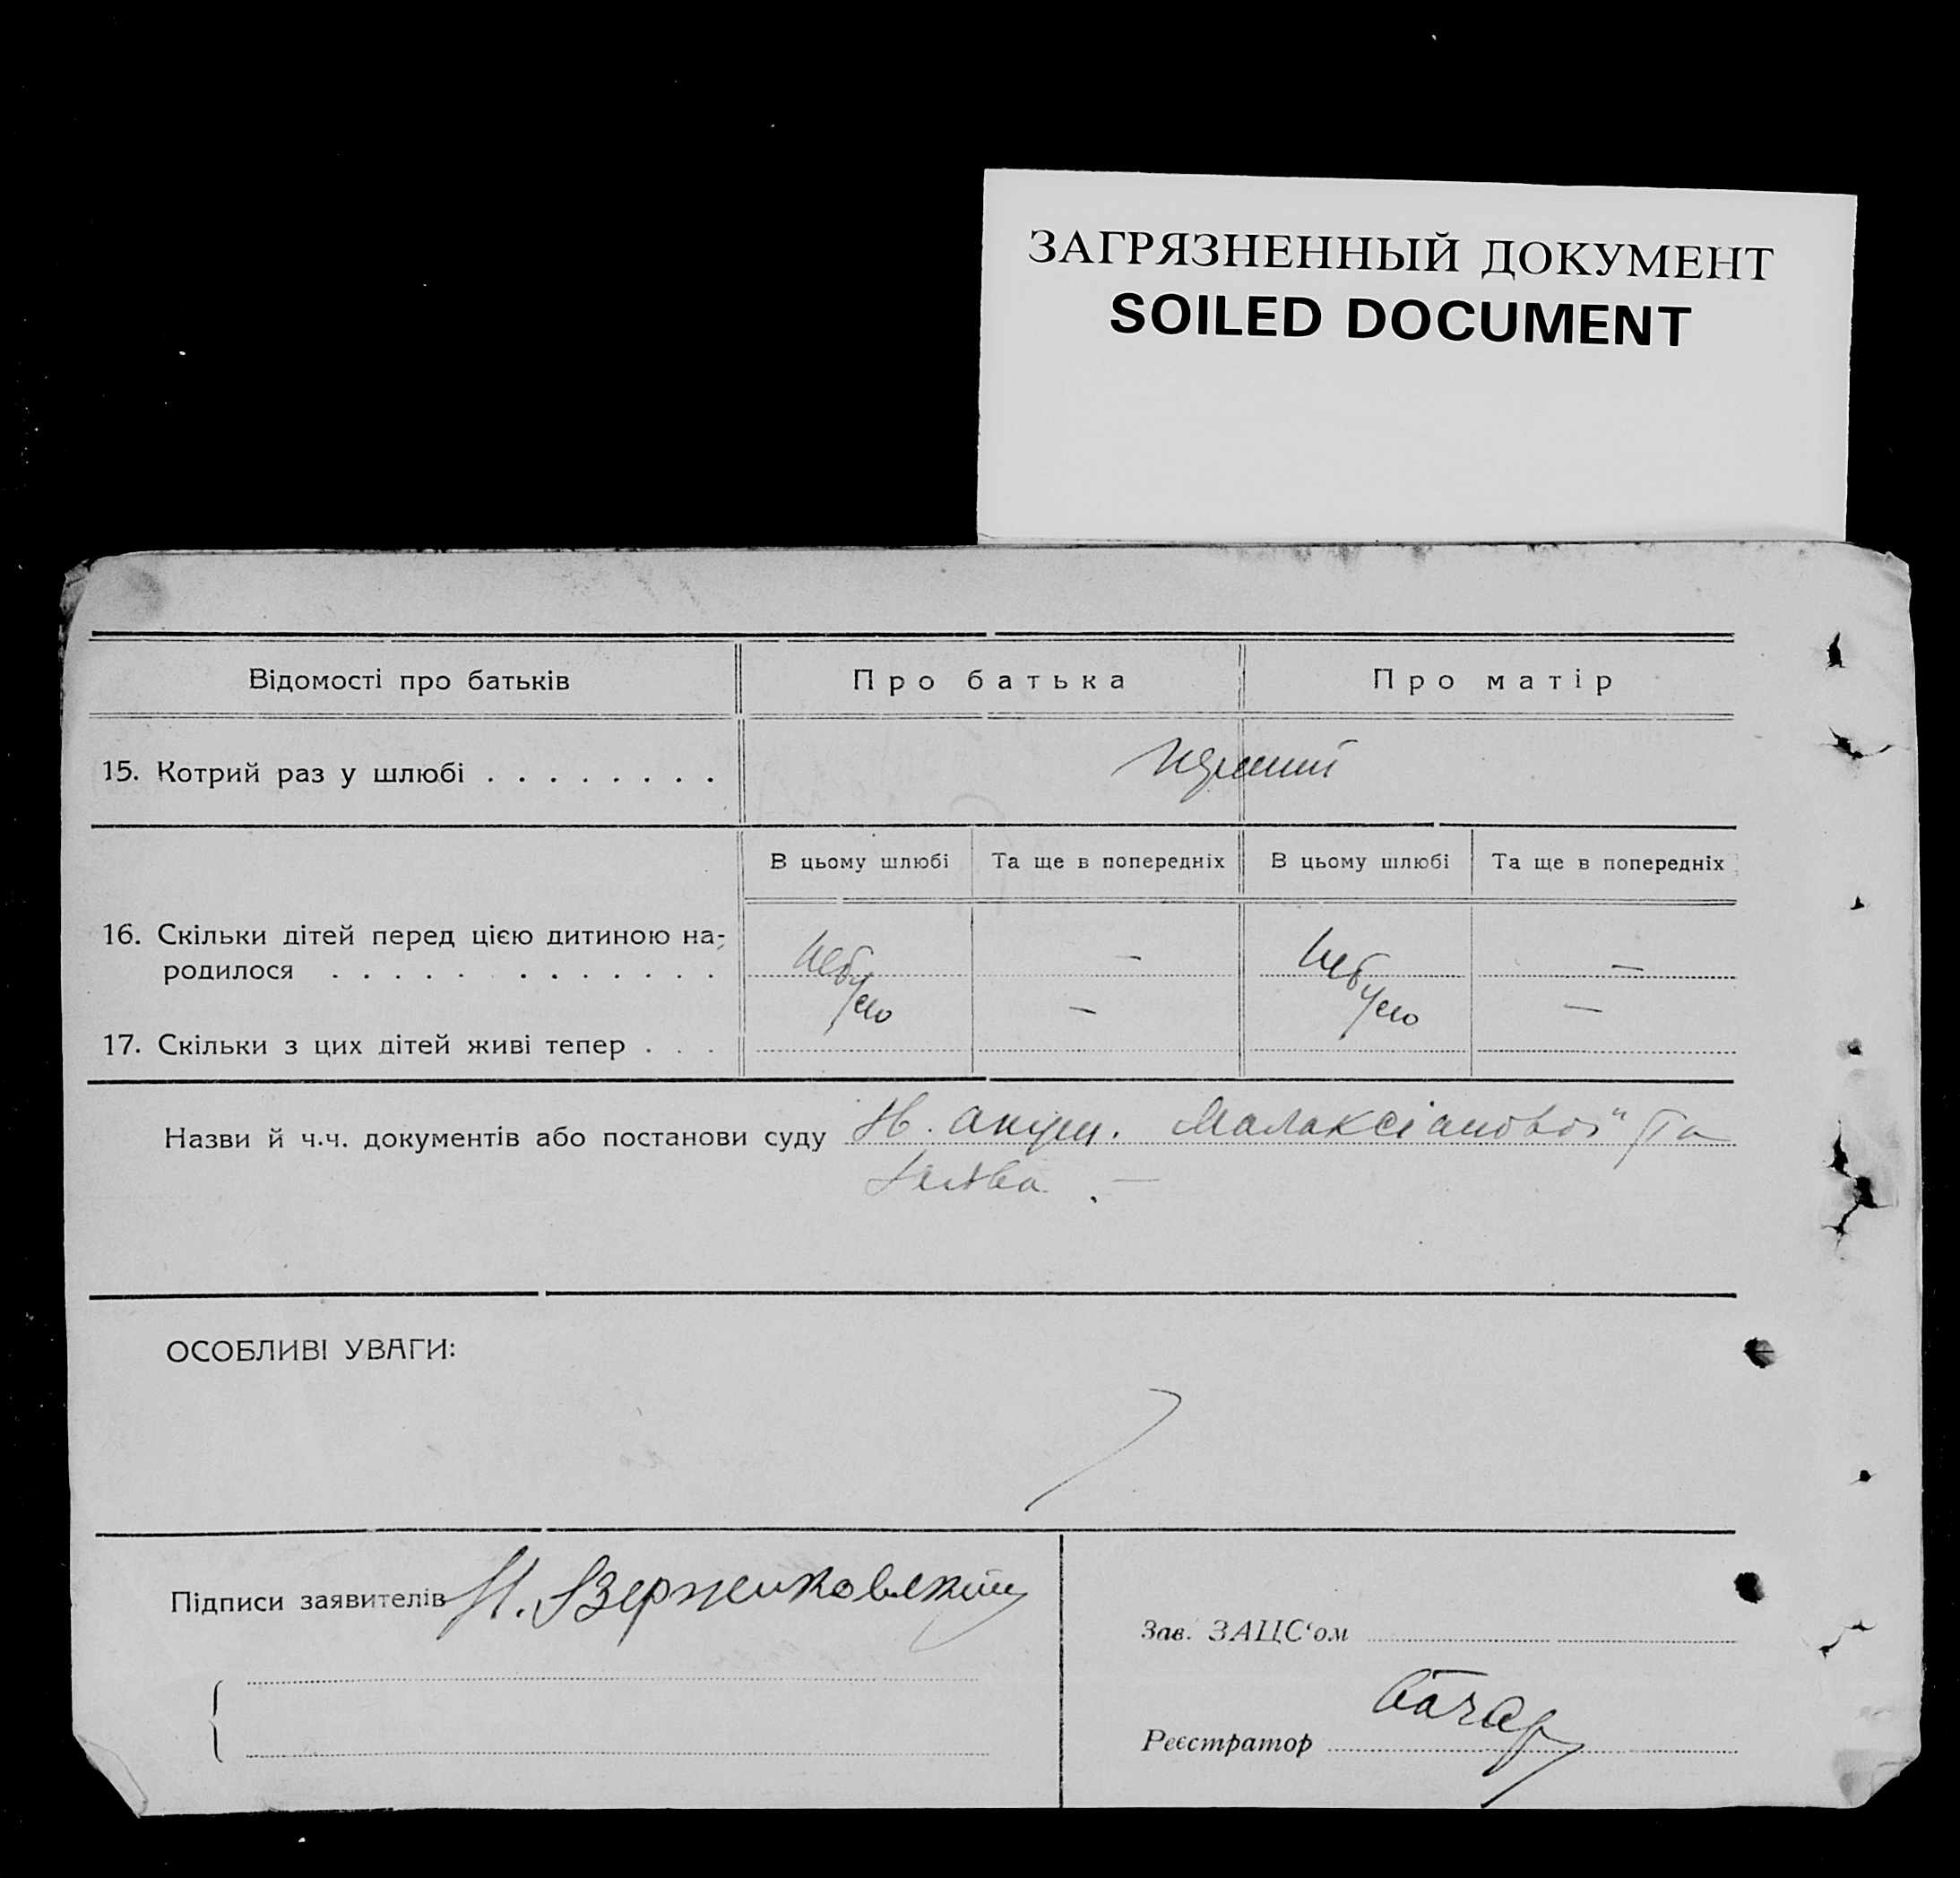 ЗАГРЯЗНЕННЫЙ ДОКУМЕНТ
SOILED DOCUMENT
Відомості про батьків
Про батька
Про матір
15. Котрий раз у шлюбі . . . . . . . .
перший
В цьому шлюбі
Та ще в попередніх
В цьому шлюбі
Та ще в попередніх
16. Скільки дітей перед цією дитиною на-
родилося . . . . . . . . . . . . .
небуло
—
небуло
—
17. Скільки з цих дітей живі тепер . . .
—
—
Назви й ч.ч. документів або постанови суду
та
ОСОБЛИВІ УВАГИ:
Підписи заявителів
Зав. ЗАЦС'ом
Реєстратор